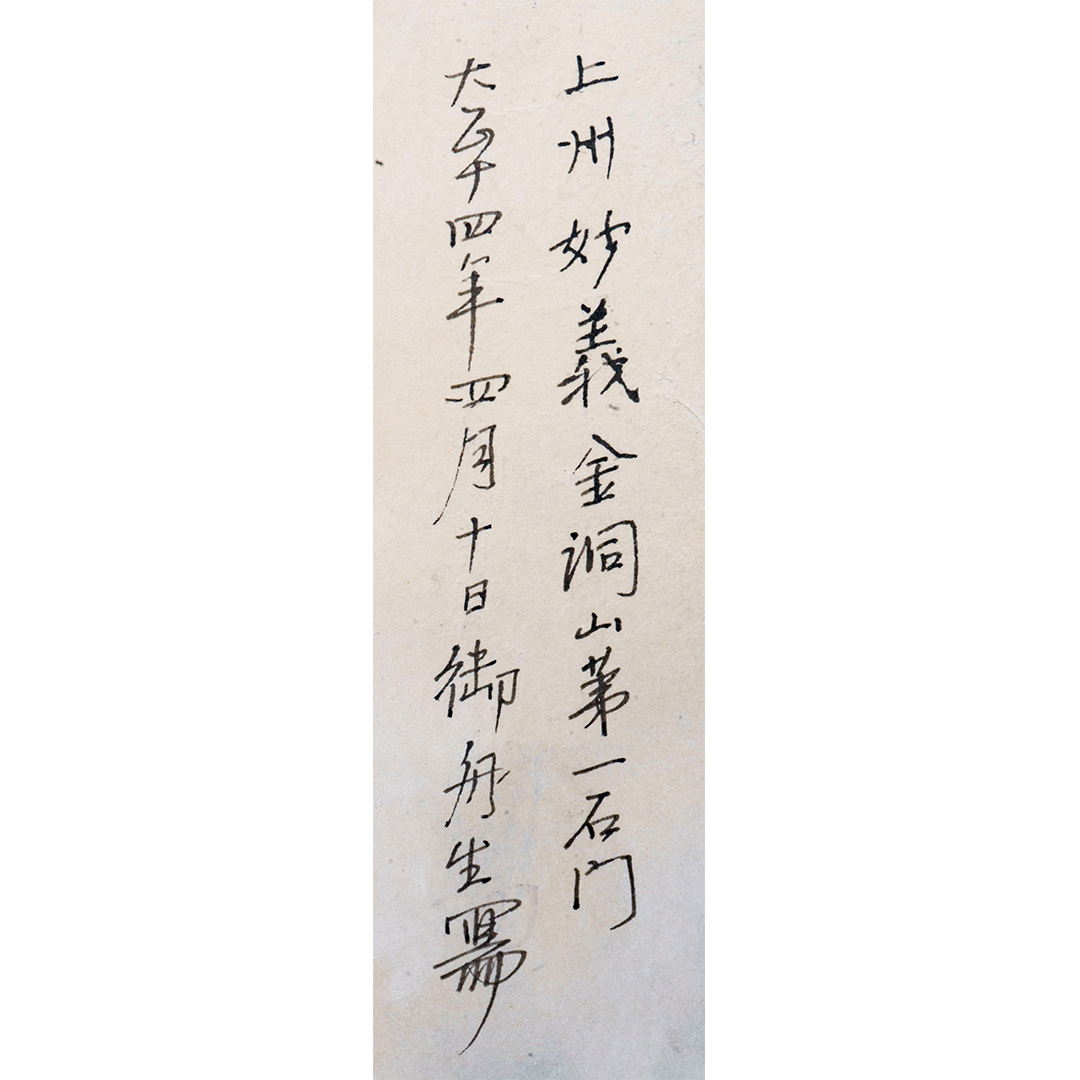 上州妙義金洞山第一石門
大正十四年四月十日御舟生寫